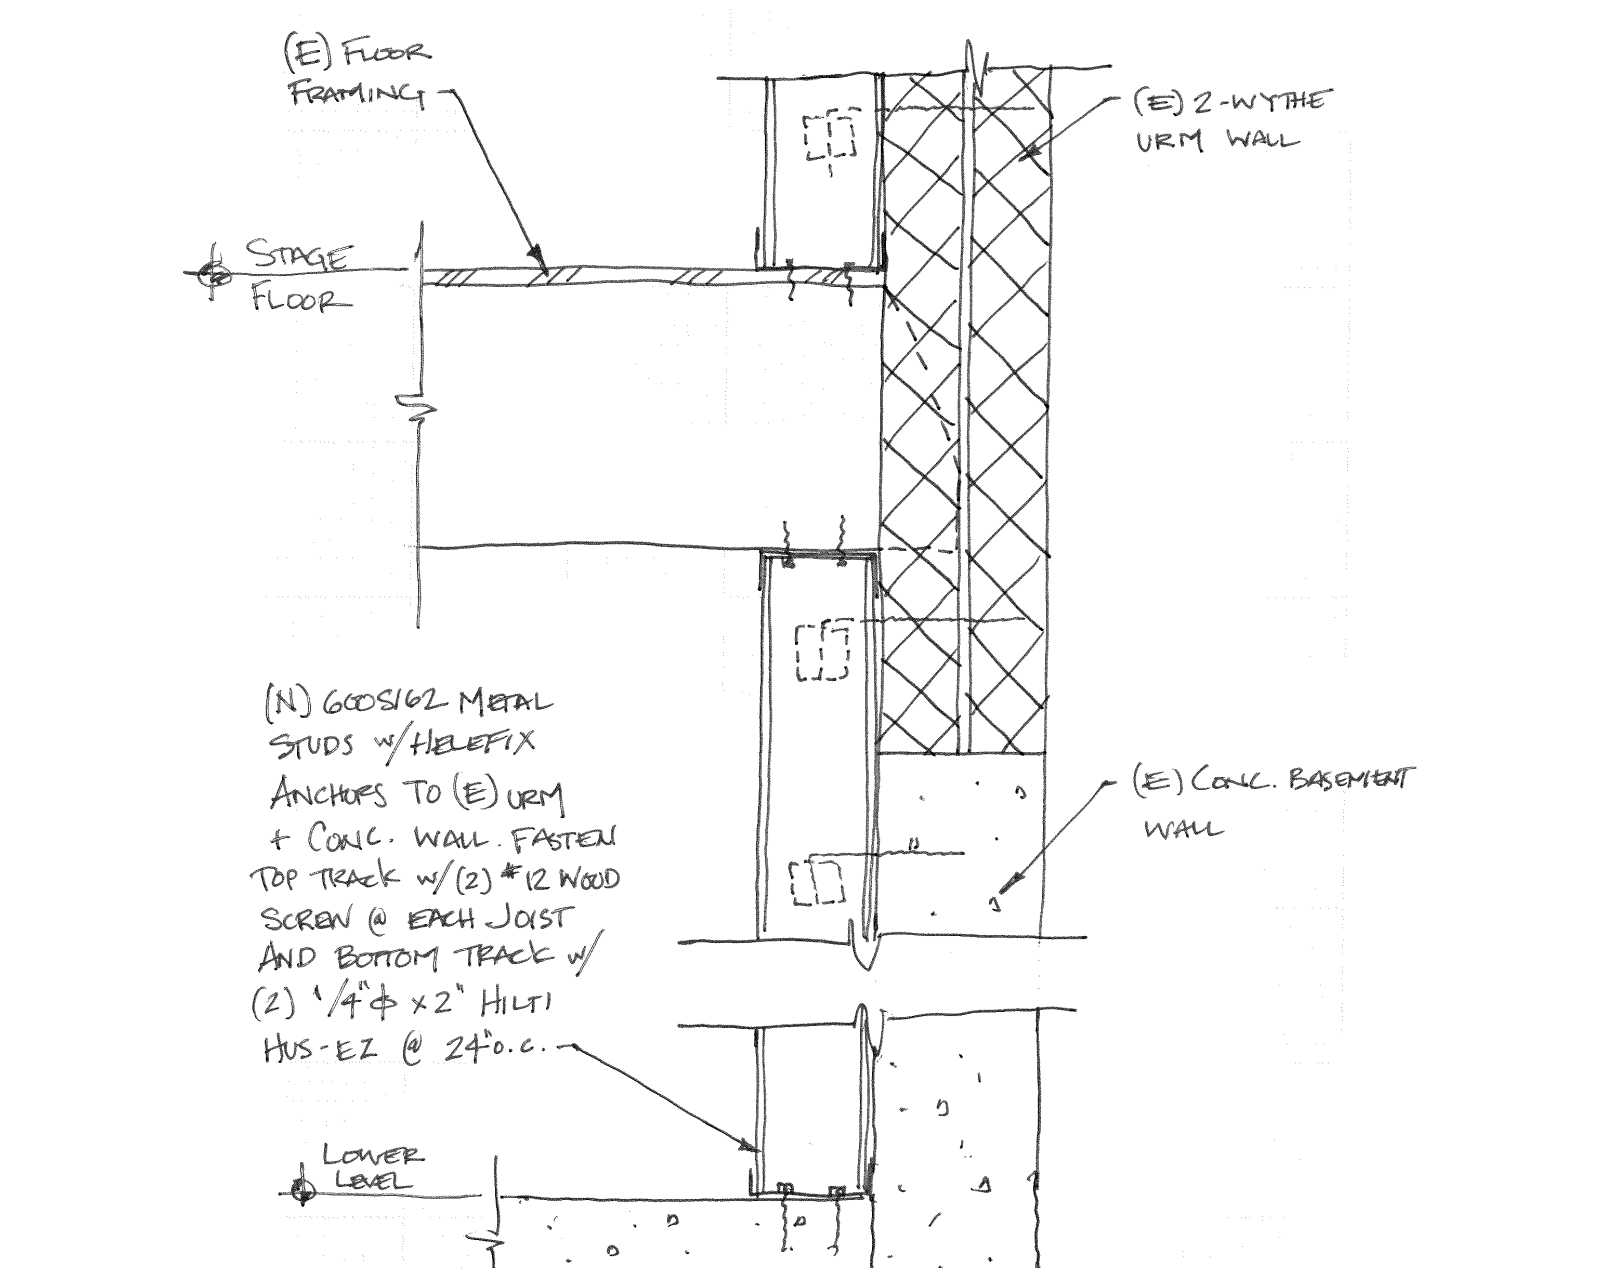 (E) FLOOR
FRAMING
(E) 2-WYTHE
URM WALL
STAGE
FLOOR
(N) 600S162 METAL
STUDS W/HELEFIX
ANCHORS TO (E) URM
+ CONC. WALL. FASTEN
TOP TRACK W/(2) #12 WOOD
SCREW @ EACH JOIST
AND BOTTOM TRACK W/
(2) 1/4"ϕ X 2" HILTI
HUS-EZ @ 24"O.C.
(E) CONC. BASEMENT
WALL
LOWER
LEVEL